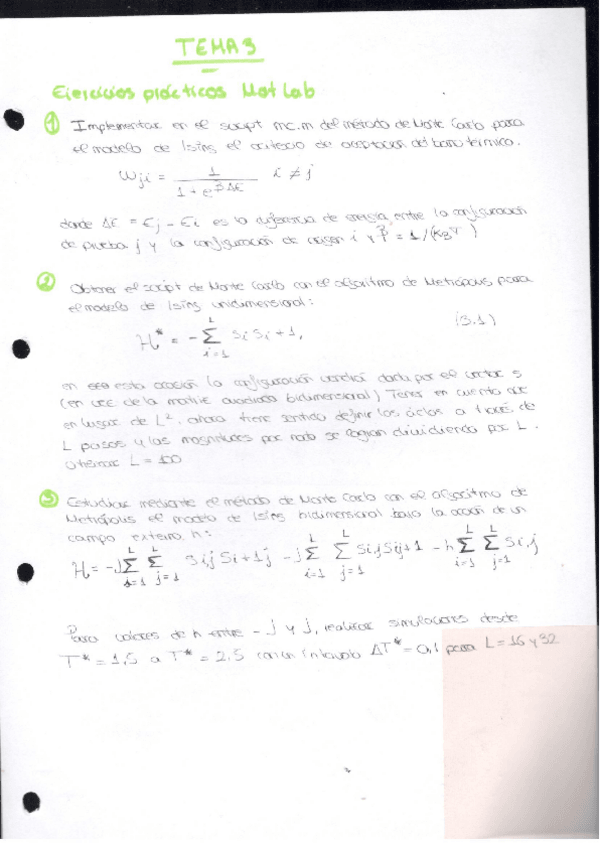 TEMA 3
Ejercicios prácticos MatLab
① Implementar en el script mc.m del método de Monte Carlo para
el modelo de Ising el criterio de aceptación del baño térmico.
ωji = 1 / (1 + e^βΔE) i ≠ j
donde ΔE = Ej - Ei es la diferencia de energía entre la configuración
de prueba j y la configuración de origen i y β = 1/(KBT)
② Obtener el script de Monte Carlo con el algoritmo de Metrópolis para
el modelo de Ising unidimensional:
H* = - Σ_{i=1}^{L} si si+1, (3.1)
en esta ocasión la configuración vendrá dada por el vector s
(en vez de la matriz cuadrada bidimensional) Tener en cuenta que
en lugar de L², ahora tiene sentido definir los ciclos a través de
L pasos y las magnitudes por nodo se logran dividiendo por L.
Utilizar L = 100
③ Estudiar mediante el método de Monte Carlo con el algoritmo de
Metrópolis el modelo de Ising bidimensional bajo la acción de un
campo externo h:
H = -J Σ_{i=1}^{L} Σ_{j=1}^{L} si,j si+1,j - J Σ_{i=1}^{L} Σ_{j=1}^{L} si,j si,j+1 - h Σ_{i=1}^{L} Σ_{j=1}^{L} si,j
Para valores de h entre -J y J, realizar simulaciones desde
T* = 1,5 a T* = 2.5 con un intervalo ΔT* = 0,1 para L = 16 y 32